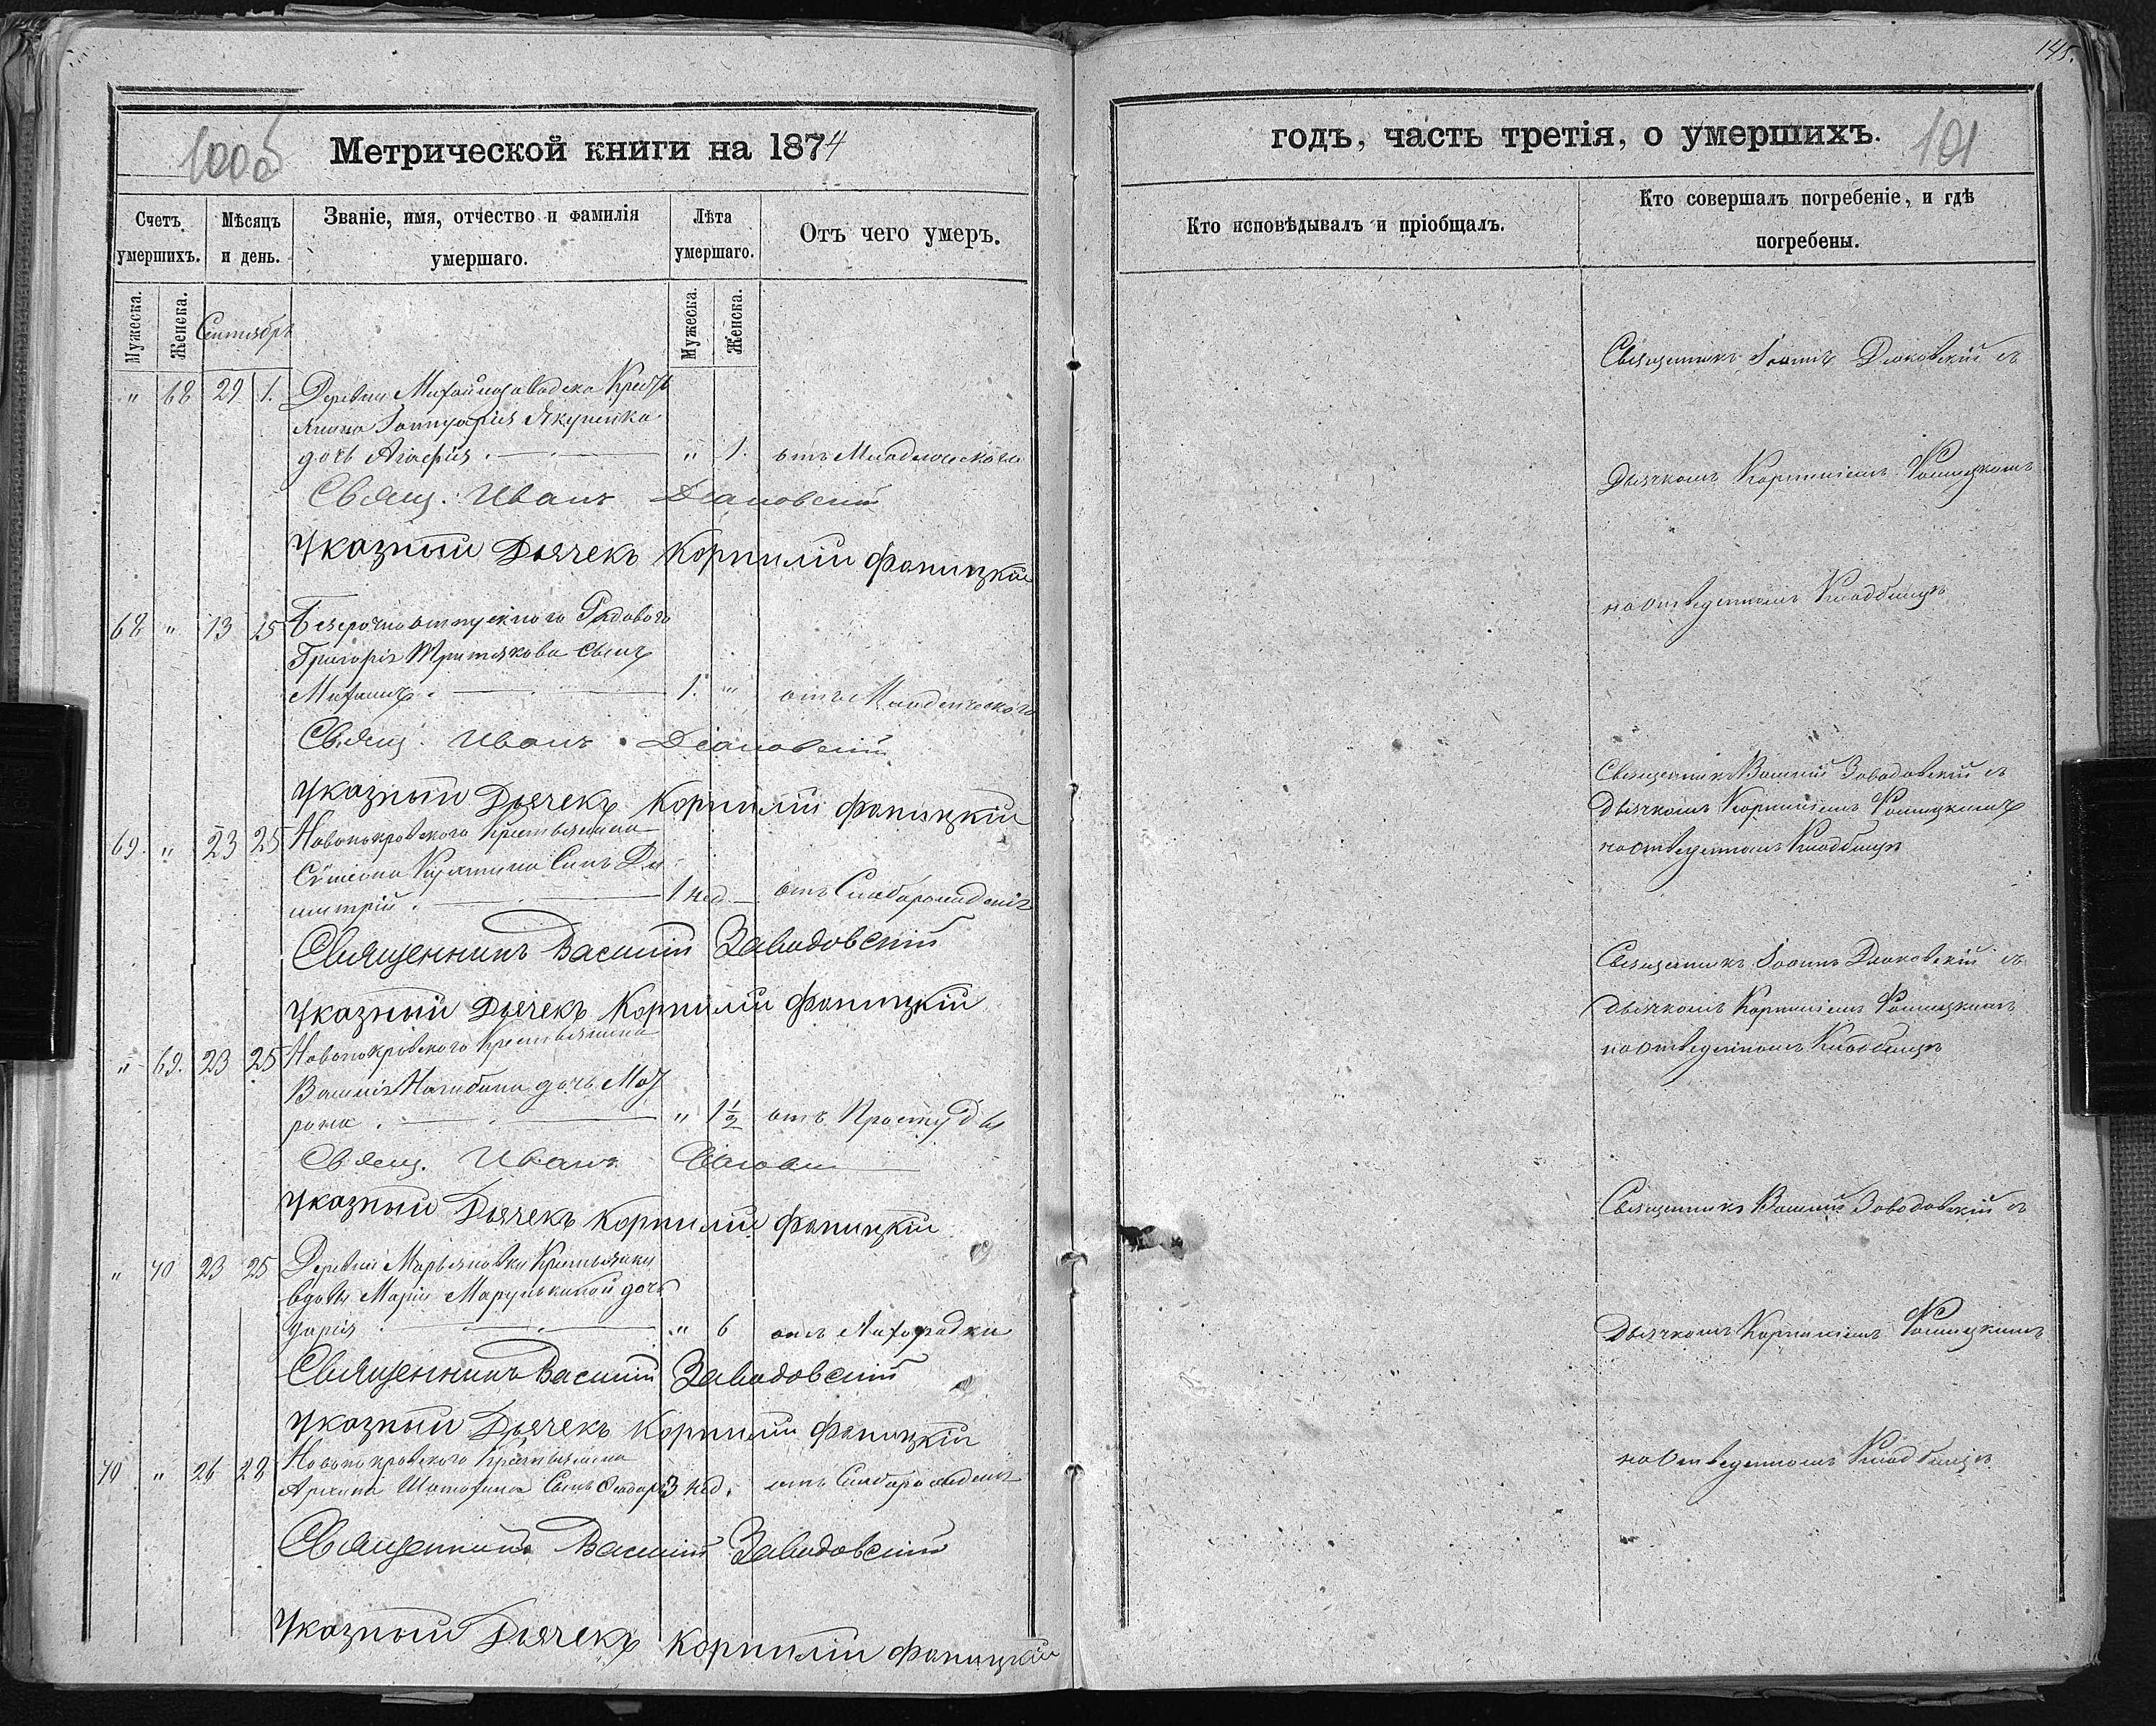 100об
Метрической книги на 1874
Счетъ умершихъ.
Мѣсяцъ и день.
Званіе, имя, отчество и фамилія умершаго.
Лѣта умершаго.
Отъ чего умеръ.
Мужеска.
Женска.
Сентябрь
Мужеска.
Женска.
" 68 29 1. Деревни
дочь Агафія. " 1. отъ Младенческаго
Свящ. Иванъ
Указный Дьячекъ Корнилій Фоницкій
68 " 13 15 Безсрочноотпускного Рядового
Григорія Третякова Сынъ
Михаилъ. 1. " отъ Младенческаго
Свящ. Иванъ
Указный Дьячекъ Корнилій Фоницкій
69. " 23 25 Новопокровского Крестьянина
Сѵмеона Сынъ Ди-
митрій. 1 нед. отъ Слаборожденія
Священникъ Василій Заводовскій
Указный Дьячекъ Корнилій Фоницкій
" 69. 23 25 Новопокровского Крестьянина
Василія дочь
" 1½ отъ Простуды
Свящ. Иванъ
Указный Дьячекъ Корнилій Фоницкій
" 70 23 25 Деревни Марьяновки Крестьянки
вдовы Маріи дочь
" 6 отъ Лихорадки
Священникъ Василій Заводовскій
Указный Дьячекъ Корнилій Фоницкій
70 " 26 28 Новопокровского Крестьянина
Сынъ Ѳеодоръ 3 нед. отъ Слаборожденія
Священникъ Василій Заводовскій
Указный Дьячекъ Корнилій Фоницкій
145.
годъ, часть третія, о умершихъ.
101
Кто исповѣдывалъ и пріобщалъ.
Кто совершалъ погребеніе, и гдѣ погребены.
Священникъ Іоаннъ съ
Дьячкомъ Корниліемъ Фоницкимъ
на отведенномъ Кладбищѣ
Священникъ Василій Заводовскій съ
Дьячкомъ Корниліемъ Фоницкимъ
на отведенномъ Кладбищѣ
Священникъ Іоаннъ съ
Дьячкомъ Корниліемъ Фоницкимъ
на отведенномъ Кладбищѣ
Священникъ Василій Заводовскій съ
Дьячкомъ Корниліемъ Фоницкимъ
на отведенномъ Кладбищѣ